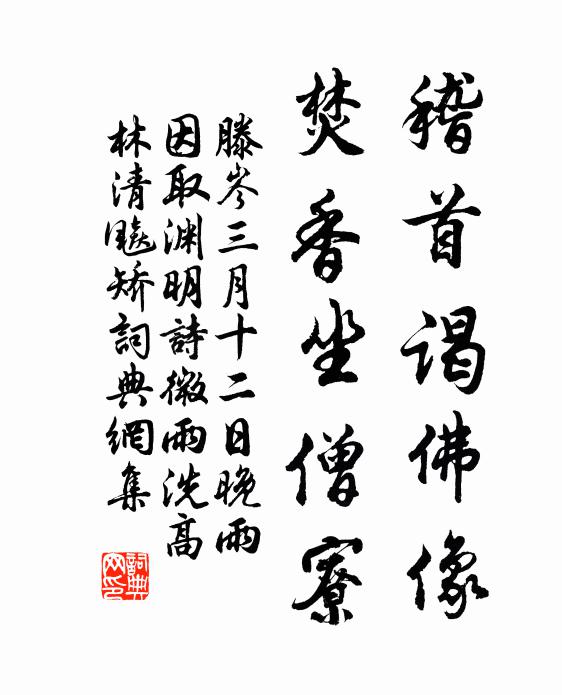 稽首謁佛像
焚香坐僧寮
滕岑三月十二日晚雨
因取渊明詩微雨洗高
林清飈矫詞典網集
詞典網印